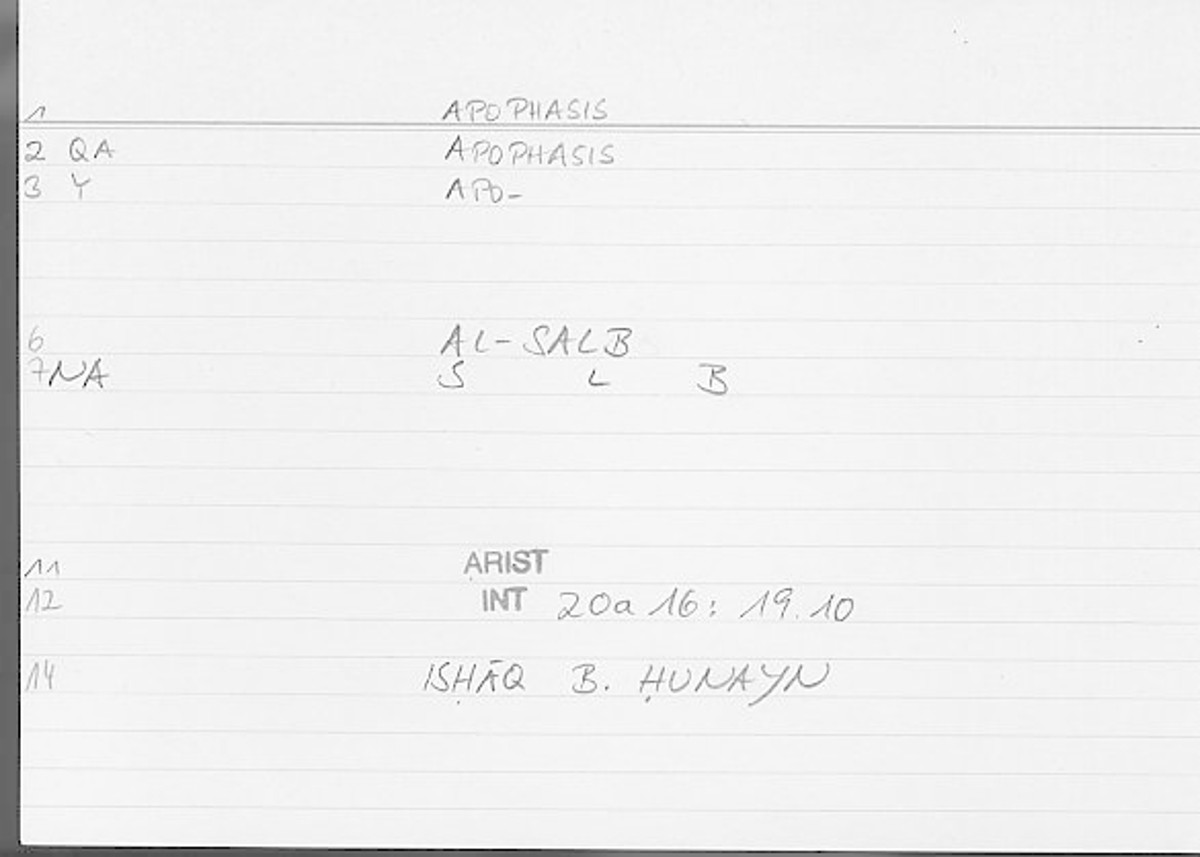 1 APOPHASIS
2 QA APOPHASIS
3 Y APO-
6 AL-SALB
7 NA S L B
11 ARIST
12 INT 20a 16: 19.10
14 ISḤĀQ B. ḤUNAYN